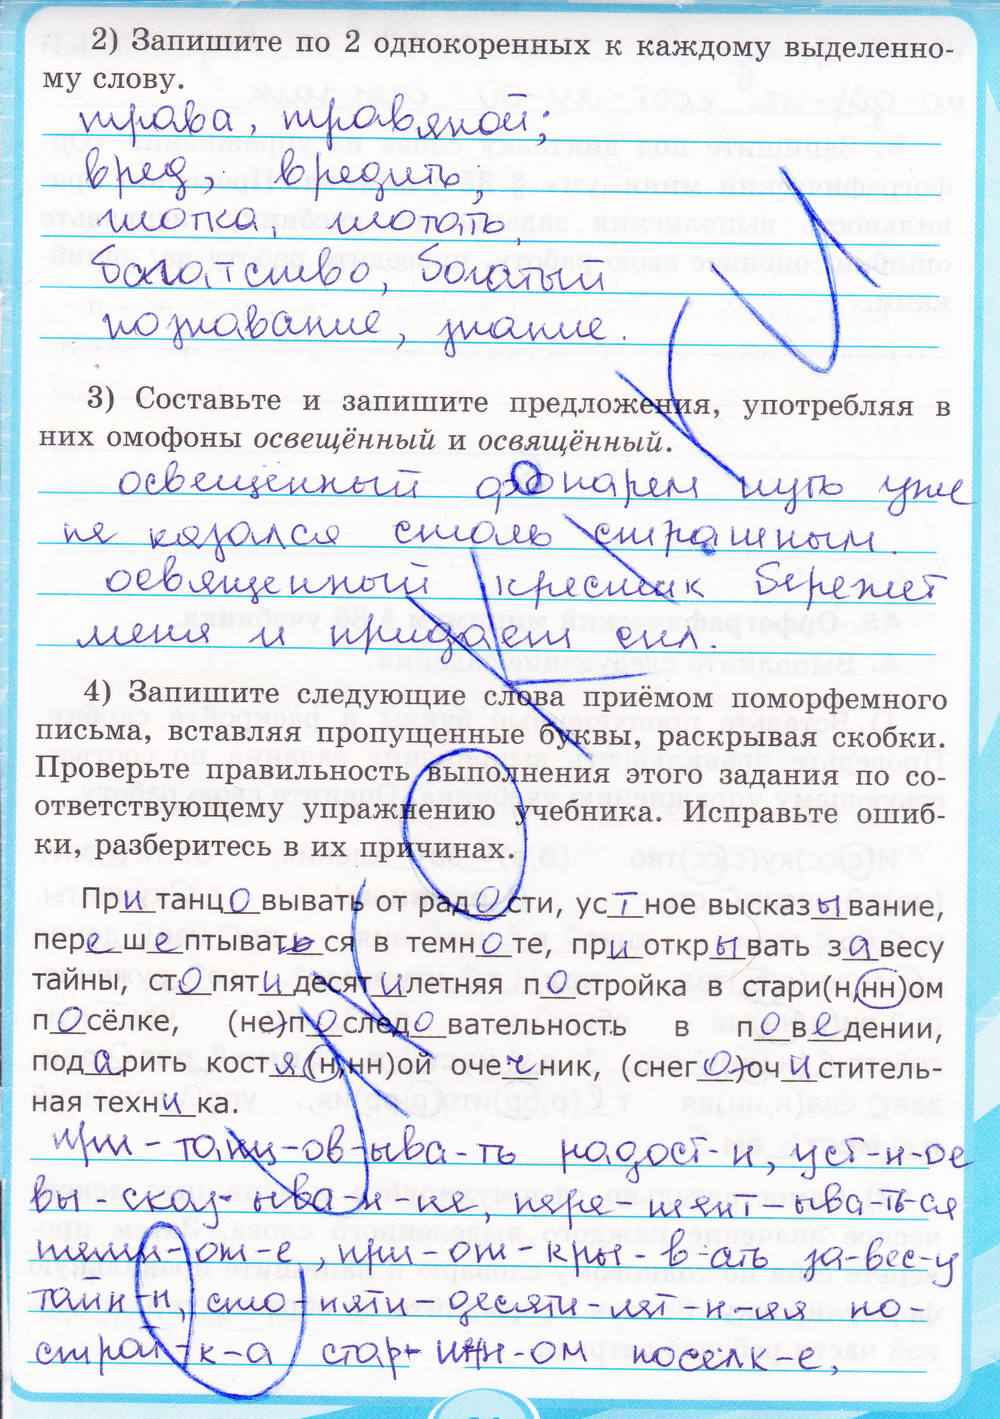 2) Запишите по 2 однокоренных к каждому выделенно-
му слову.
трава, травяной;
вред, вредить;
мотка, мотать,
богатство, богатый
познавание, знание.
3) Составьте и запишите предложения, употребляя в
них омофоны освещённый и освящённый.
освещенный фонарем путь уже
не казался столь страшным.
освященный крестик бережет
меня и придает сил.
4) Запишите следующие слова приёмом поморфемного
письма, вставляя пропущенные буквы, раскрывая скобки.
Проверьте правильность выполнения этого задания по со-
ответствующему упражнению учебника. Исправьте ошиб-
ки, разберитесь в их причинах.
Пританцовывать от радости, устное высказывание,
перешептываться в темноте, приоткрывать завесу
тайны, стопятидесятилетняя постройка в стари(н,нн)ом
посёлке, (не)последовательность в поведении,
подарить костя(н,нн)ой очечник, (снего)очиститель-
ная техника.
при-танц-ов-ыва-ть радост-и, уст-н-ое
вы-сказ-ыва-н-ие, пере-шепт-ыва-ться
темн-от-е, при-от-кры-в-ать за-вес-у
тайн-ы, сто-пяти-десяти-лет-н-яя по-
строй-к-а стар-инн-ом поселк-е,